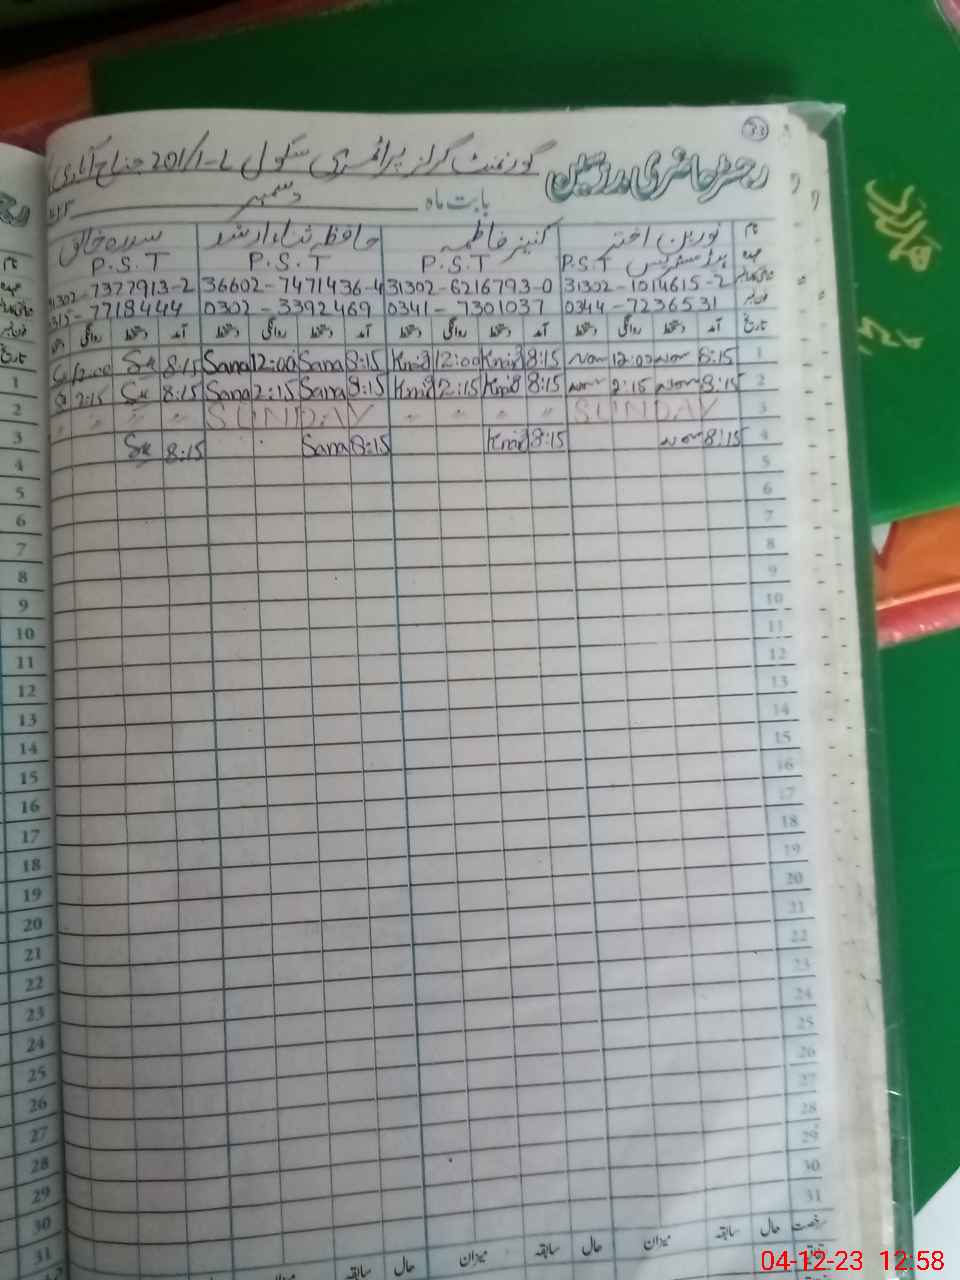 33
رجسٹر حاضری مدرسین
گورنمنٹ گرلز پرائمری سکول 201/1-L جناح آبادی
بابت ماہ دسمبر
نام نورین اختر کنیز فاطمہ حافظہ ثناء ارشد سدرہ خالق
عہدہ P.S.T ہیڈ مسٹریس P.S.T P.S.T P.S.T
31302-1014615-2 31302-6216793-0 36602-7471436-4 31302-7377913-2
0344-7236531 0341-7301037 0302-3392469 0315-7718444
تاریخ آمد دستخط روانگی دستخط آمد دستخط روانگی دستخط آمد دستخط روانگی دستخط آمد دستخط روانگی
1 8:15 12:00 8:15 Kniz 12:00 Kniz 8:15 Sana 12:00 Sana 8:15 12:00
2 8:15 2:15 8:15 Kniz 2:15 Kniz 8:15 Sana 2:15 Sana 8:15 2:15
3 SUNDAY " " " " SUNDAY " " " "
4 8:15 8:15 Kniz 8:15 Sana 8:15
5
6
7
8
9
10
11
12
13
14
15
16
17
18
19
20
21
22
23
24
25
26
27
28
29
30
31
رخصت حال سابقہ میزان حال سابقہ میزان حال سابقہ میزان
نام
عہدہ
تاریخ
1
2
3
4
5
6
7
8
9
10
11
12
13
14
15
16
17
18
19
20
21
22
23
24
25
26
27
28
29
30
31
04-12-23 12:58